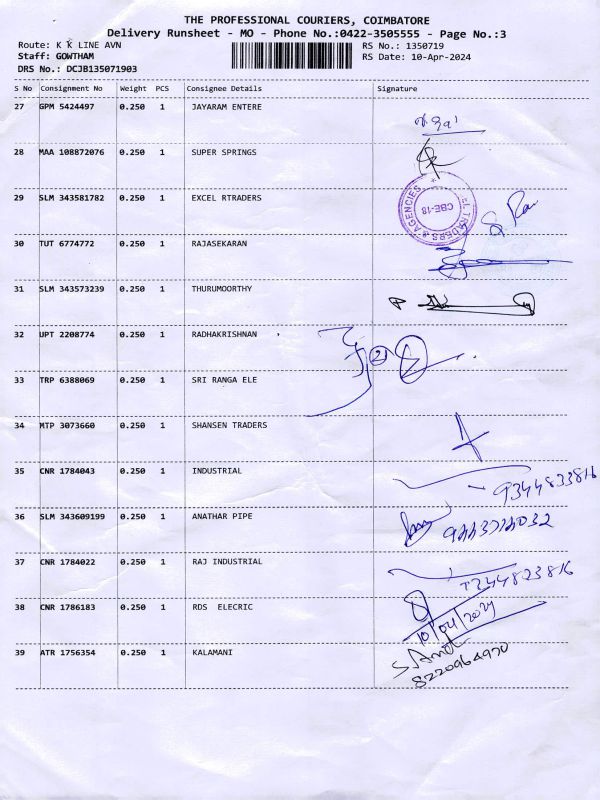 THE PROFESSIONAL COURIERS, COIMBATORE
Delivery Runsheet - MO - Phone No.:0422-3505555 - Page No.:3
Route: K K LINE AVN RS No.: 1350719
Staff: GOWTHAM RS Date: 10-Apr-2024
DRS No.: DCJB135071903
S No Consignment No Weight PCS Consignee Details Signature
27 GPM 5424497 0.250 1 JAYARAM ENTERE
28 MAA 108872076 0.250 1 SUPER SPRINGS
29 SLM 343581782 0.250 1 EXCEL RTRADERS
AGENCIES
CBE-18
TRADERS &
30 TUT 6774772 0.250 1 RAJASEKARAN
31 SLM 343573239 0.250 1 THURUMOORTHY
32 UPT 2208774 0.250 1 RADHAKRISHNAN
2
33 TRP 6388069 0.250 1 SRI RANGA ELE
34 MTP 3073660 0.250 1 SHANSEN TRADERS
35 CNR 1784043 0.250 1 INDUSTRIAL
9344833816
36 SLM 343609199 0.250 1 ANATHAR PIPE
37 CNR 1784022 0.250 1 RAJ INDUSTRIAL
38 CNR 1786183 0.250 1 RDS ELECRIC
10/04/2024
39 ATR 1756354 0.250 1 KALAMANI
8220964970